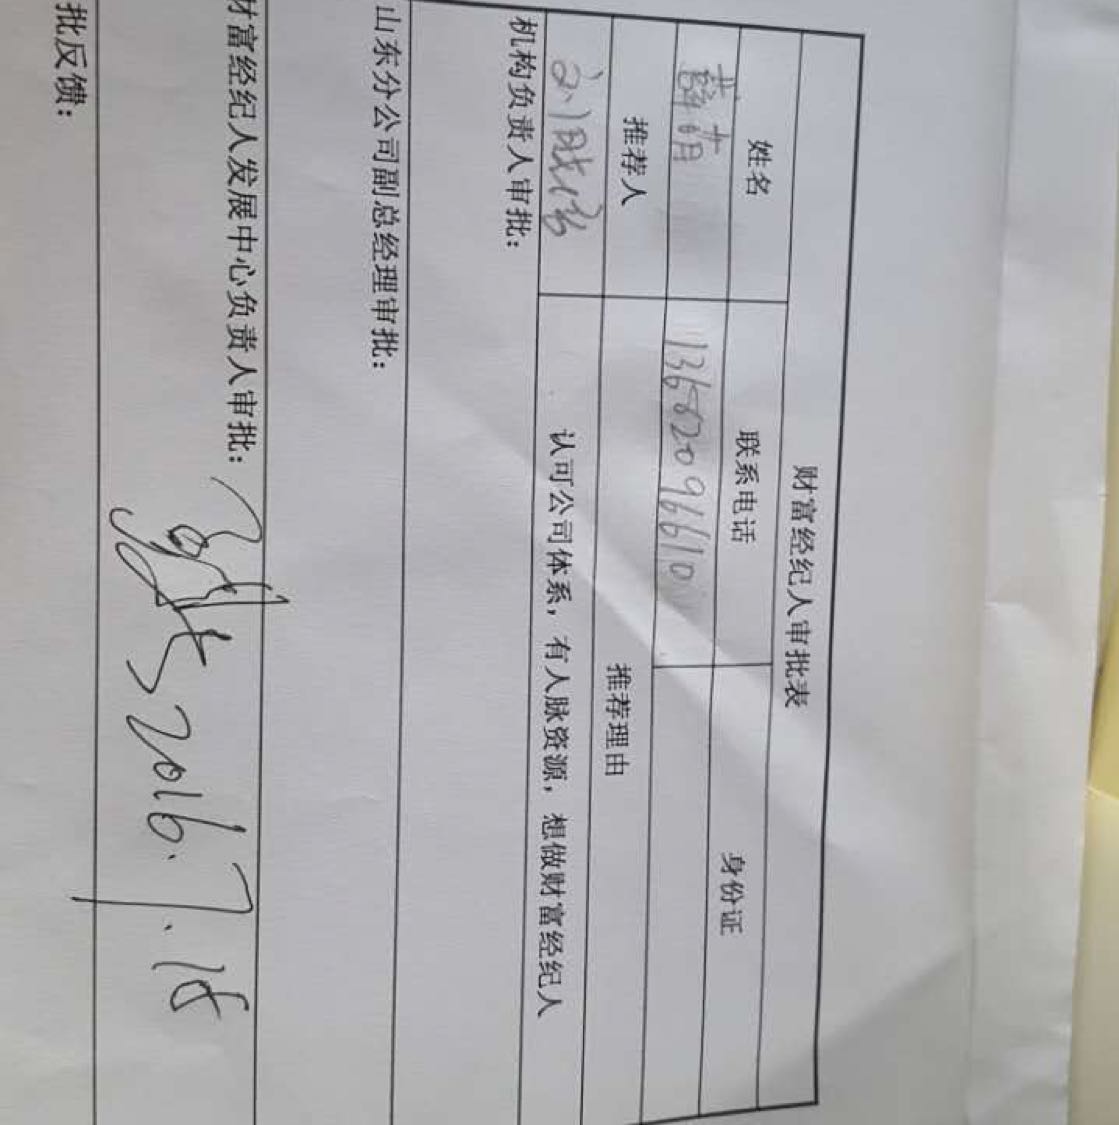 财富经纪人审批表
姓名 联系电话 身份证
薛菁 13682096610
推荐人 推荐理由
认可公司体系，有人脉资源，想做财富经纪人
机构负责人审批：
山东分公司副总经理审批：
财富经纪人发展中心负责人审批：
2016.7.18
批反馈：